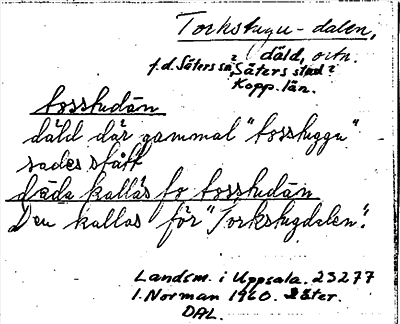 Torkstugu-dalen,
däld, ortn.
f.d. Säters sn? Säters stad?
Kopp. län.
tosstudän
däld där gammal "tosstuggu"
sades stått
däda kallas fo tosstudän
Den kallas för "Torkstugdalen".
Landsm. i Uppsala. 23277
I. Norman 1960. Säter.
DAL.